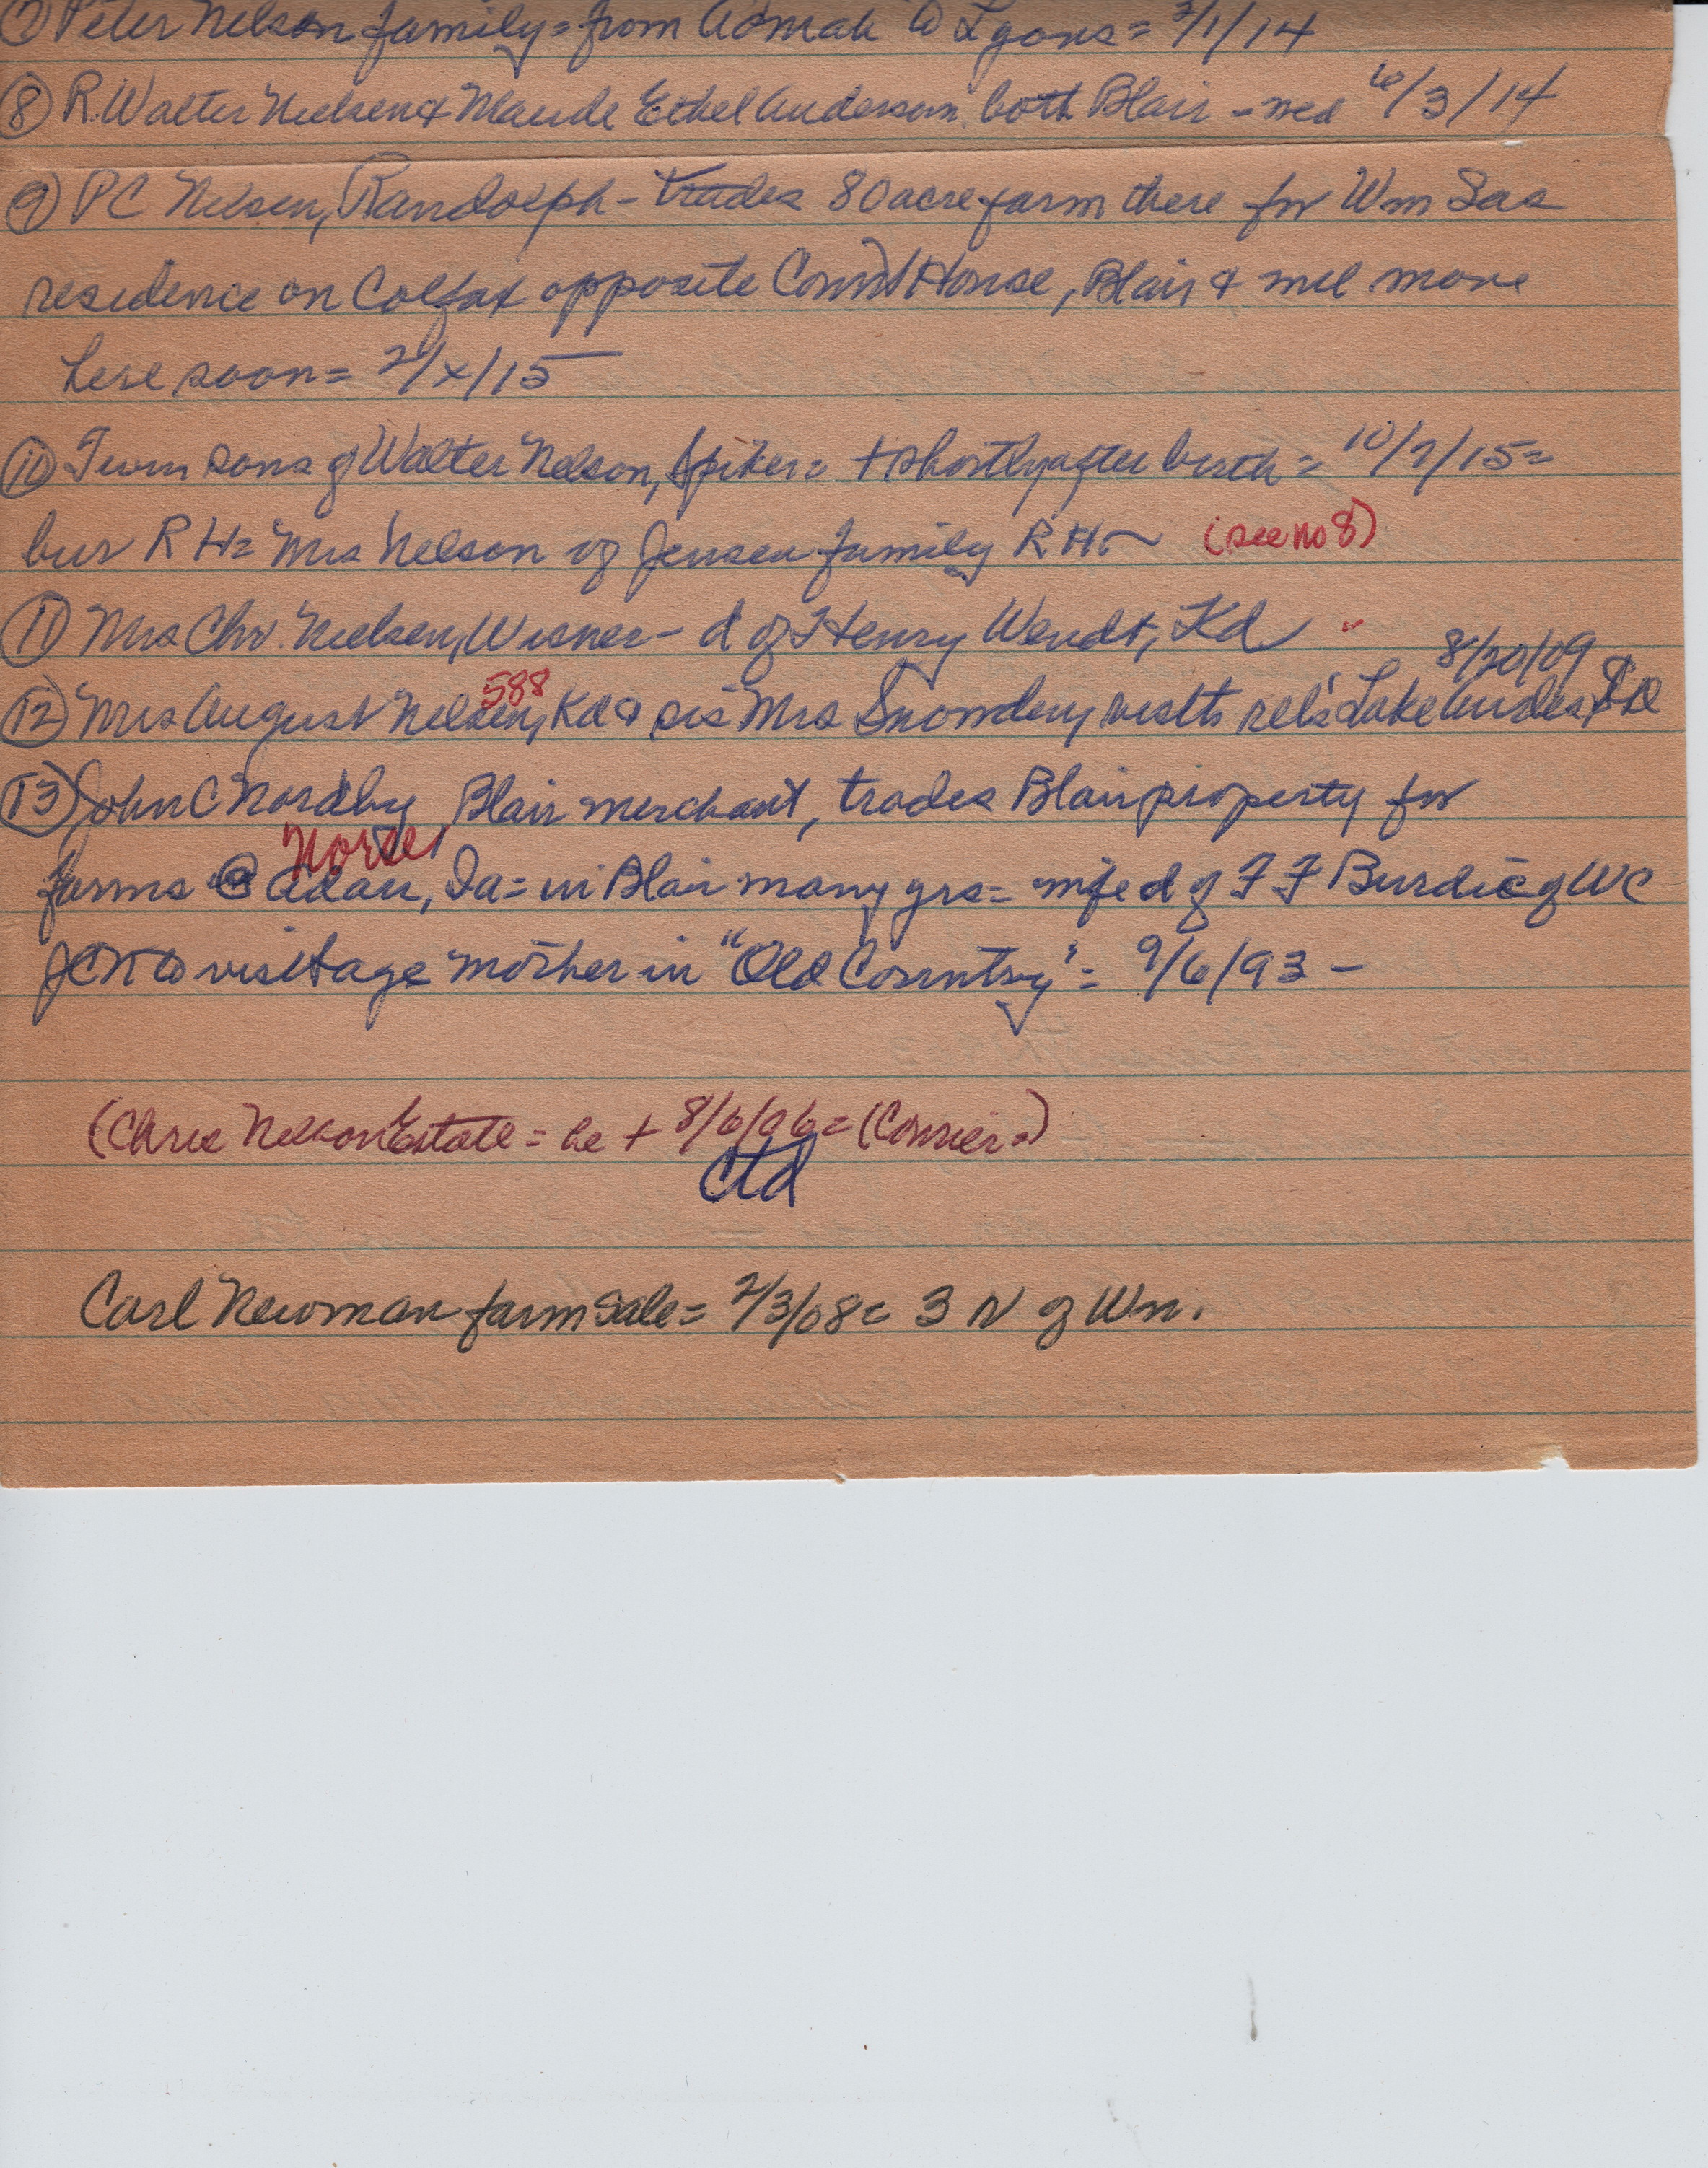 ⑦ Peter Nelson family = from Admah to Lyons = 3/1/14
⑧ R. Walter Nielsen & Maude Ethel Anderson, both Blair - wed 6/3/14
⑨ PC Nelsen, Randolph - trades 80 acre farm there for Wm Sas
residence on Colfax opposite Court House, Blair & will move
here soon = 2/x/15
⑩ Twin sons of Walter Nelson, Spiker = + shortly after birth = 10/7/15 =
bur R H = Mrs Nelson of Jensen family R H - (see no 8)
⑪ Mrs Chr. Nielsen, Wisner - d of Henry Wendt, Kd
588 8/20/09
⑫ Mrs August Nielsen, Kd & sis Mrs Snowdeny visits rel's Lake Andes, SD
⑬ John C Nordby, Blair merchant, trades Blair property for
Norse
farms @ Adair, Ia = in Blair many yrs = wife d of F F Burdic of WC
JCN to visit age mother in "Old Country" = 9/6/93 -
(Chris Nelson Estate = he + 8/6/96 = (Courier =)
Ctd
Carl Newman farm sale = 2/3/08 = 3 N of Wn.